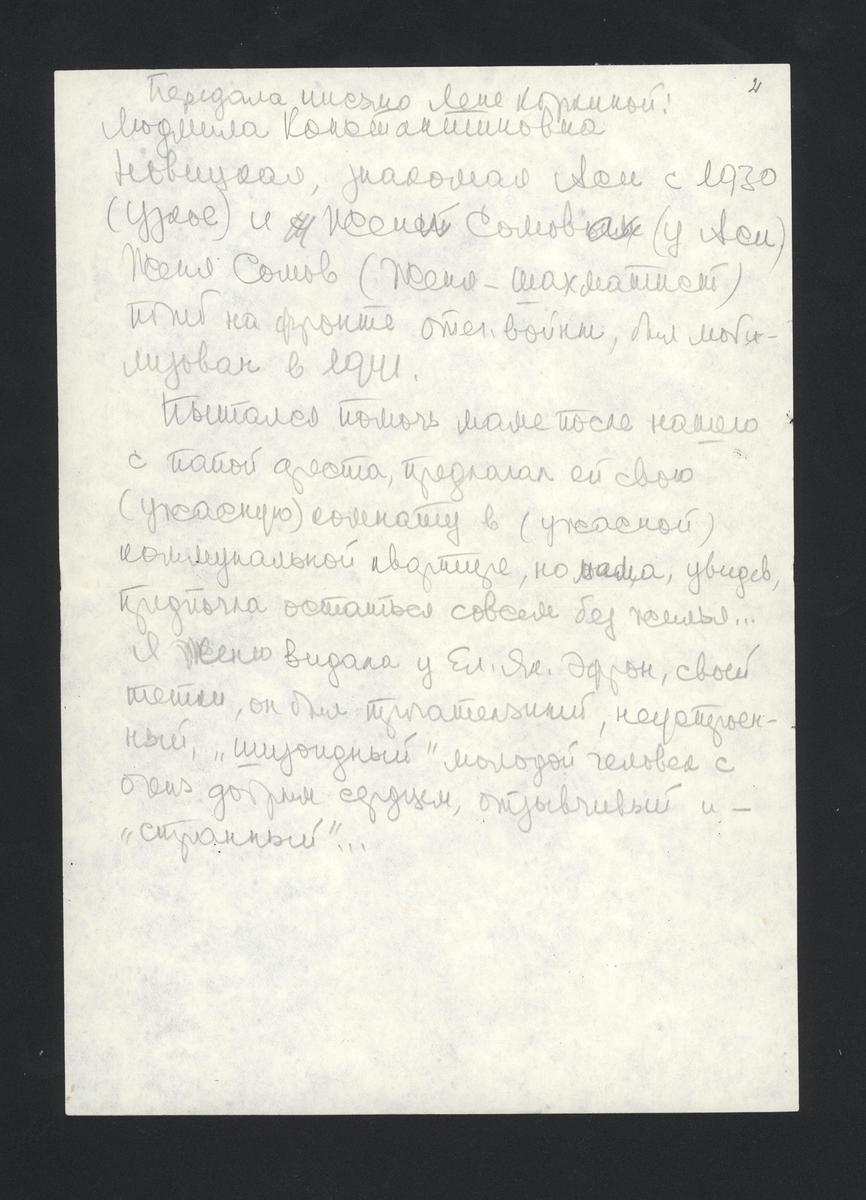 21
Передала письмо Лене Коркиной:
Людмила Константиновна
Новицкая, знакомая Аси с 1930
(Узкое) и Жени Сомова (у Аси)
Женя Сомов (Женя – шахматист)
погиб на фронте отеч. войны, был моби-
лизован в 1941.
Пытался помочь маме после нашего
с папой ареста, предлагал ей свою
(ужасную) комнату в (ужасной)
коммунальной квартире, но мама, увидев,
предпочла остаться совсем без жилья...
Я Женю видала у Ел. Як. Эфрон, своей
тетки, он был трогательный, неустроен-
ный, „шизоидный" молодой человек с
очень добрым сердцем, отзывчивый и –
„странный"...